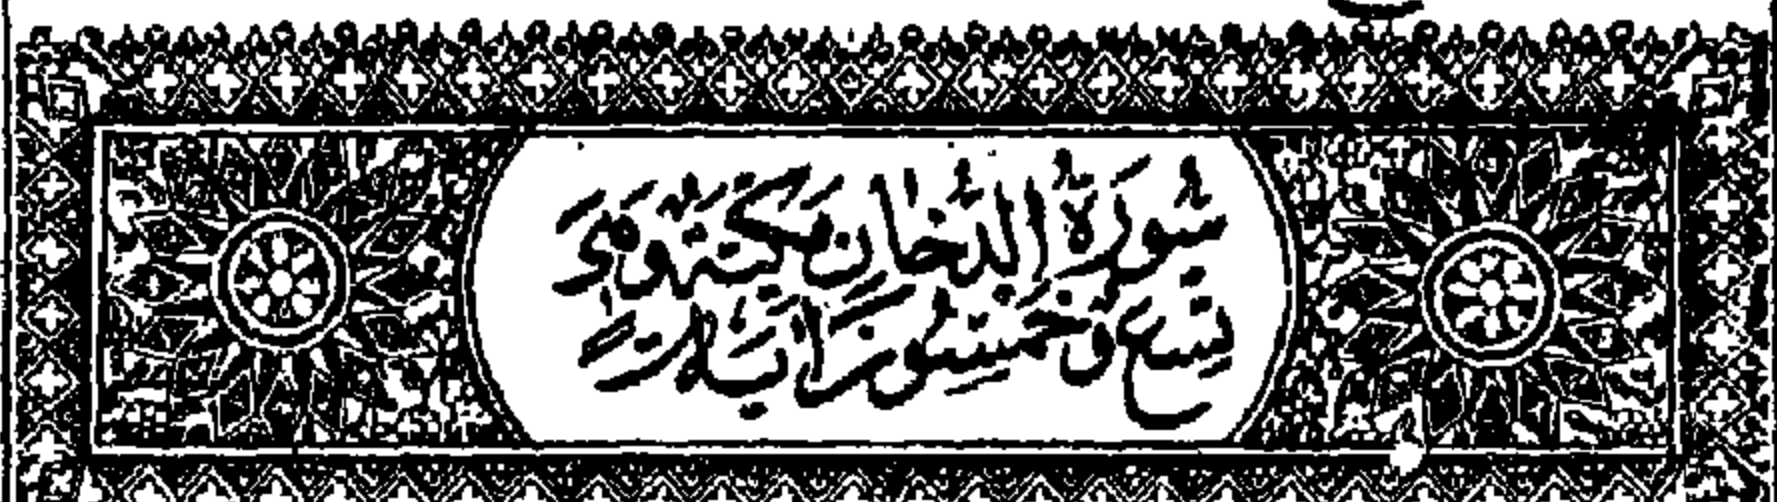 سُورَةُ الدُّخَانِ مَكِّيَّةٌ وَهِيَ
تِسْعٌ وَخَمْسُونَ اٰيَاتٍ